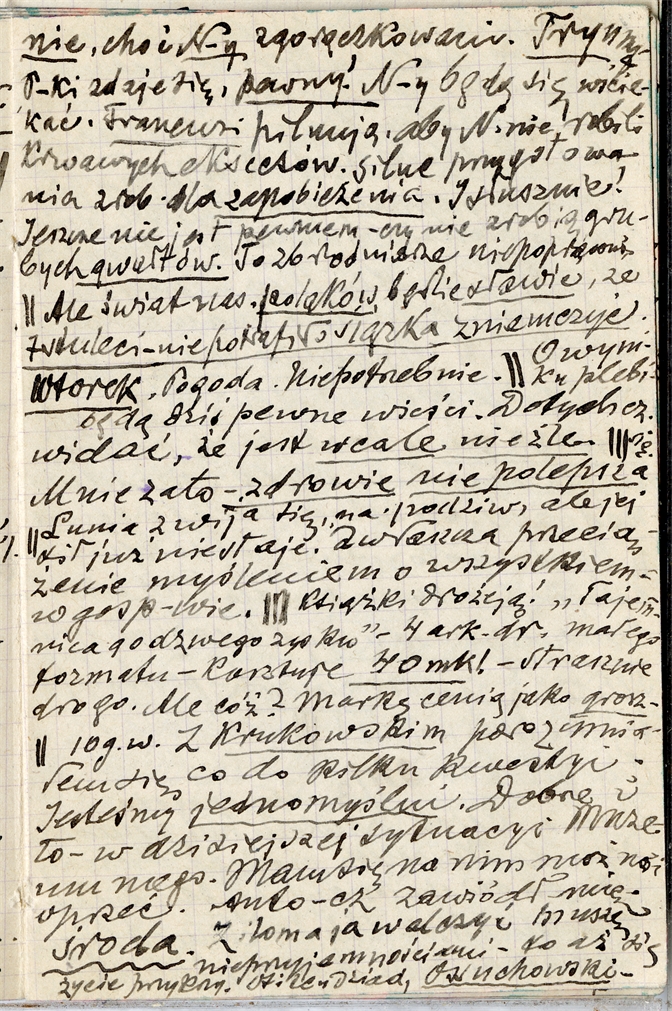 nie, choć N-y zgorączkowani. Tryumf
P-ki zdaje się, pewny! N-y będą się wście-
kać. Francuzi pilnują, aby N. nie robili
krwawych ekscesów. Silne przygotowa-
nia zrob. dla zapobieżenia. I słusznie!
Jeszcze nie jest pewnem - czy nie zrobią gru-
bych gwałtów. To zbrodniarze niepoprawni.
|| Ale świat nas, polaków, będzie sławić, że
7 stuleci - nie potrafiło Ślązka zniemczyć.
Wtorek. Pogoda. Niepotrzebnie. || O wyni-
ku plebi-
będą dziś pewne wieści. Dotychcz.
widać, że jest wcale nieźle. |||
Mnie zato - zdrowie nie polepsza się.
|| Lunia zwija się, na podziw, ale jej
sił już nie staje. Zwłaszcza przecią-
żenie myśleniem o wszystkiem -
w gosp-wie. ||| Książki drożeją! "Tajem-
nica godziwego zysku" - 4 ark. dr. małego
formatu - kosztuje 40 mk! - strasznie
drogo. Ale cóż? Markę cenią jako grosz.
|| 10 g. w. Z Krukowskim porozumia-
łem się co do kilku kwestyi.
Jesteśmy jednomyślni. Dobre i
to - w dzisiejszej sytuacyi
Mam się na nim możność
oprzeć. zawiódł mię.
Środa. Z iłoma ja walczyć muszę
nieprzyjemnościami - to aż się
życie przykrzy. Osuchowski -